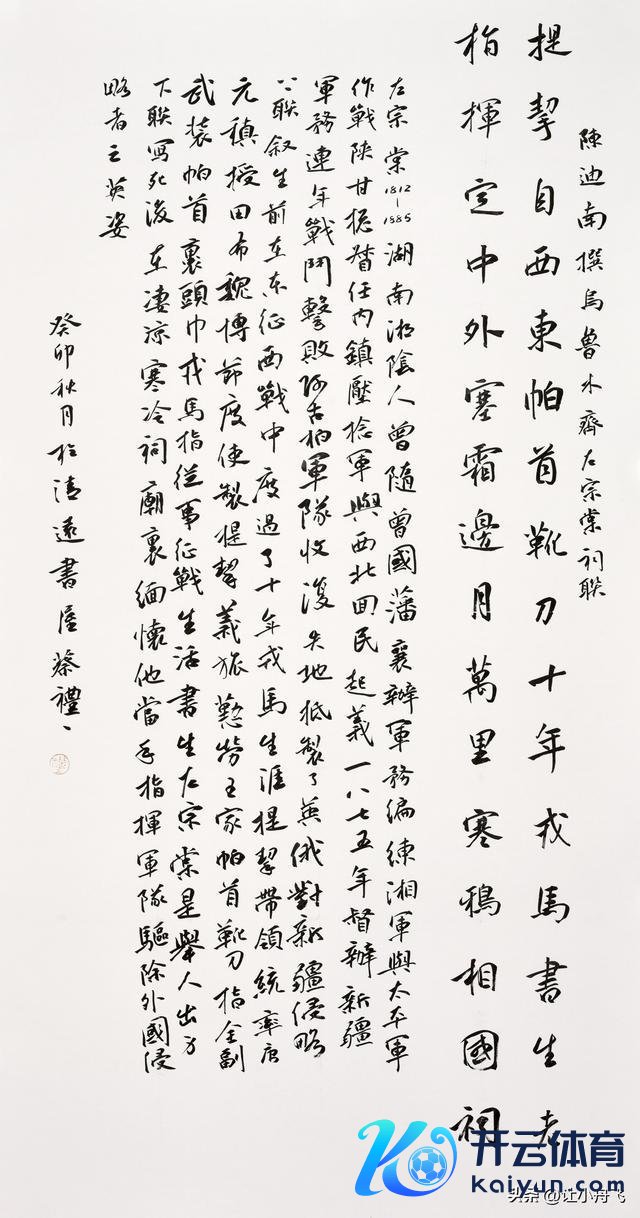 提挈自西東帕首靴刀十年戎馬書生老
指揮定中外塞霜邊月萬里寒鴉相國祠
陳迪南撰烏魯木齊左宗棠祠聯
左宗棠1812-1885湖南湘陰人曾隨曾國藩襄辦軍務編練湘軍與太平軍
作戰陝甘總督任內鎮壓捻軍與西北回民起義一八七五年督辦新疆
軍務連年戰鬥擊敗阿古柏軍隊收復失地抵製了英俄對新疆侵略
上聯敘生前在東征西戰中度過了十年戎馬生涯提挈帶領統率唐
元稹授田布魏博節度使製提挈義旅勤勞王家帕首靴刀指全副
武裝帕首裹頭巾戎馬指從事征戰生活書生左宗棠是舉人出身
下聯寫死後在淒涼寒冷祠廟裏緬懷他當年指揮軍隊驅除外國侵
略者之英姿
癸卯秋月於清遠書屋蔡禮
开云体育
kaiyun.com
头条@让小舟飞